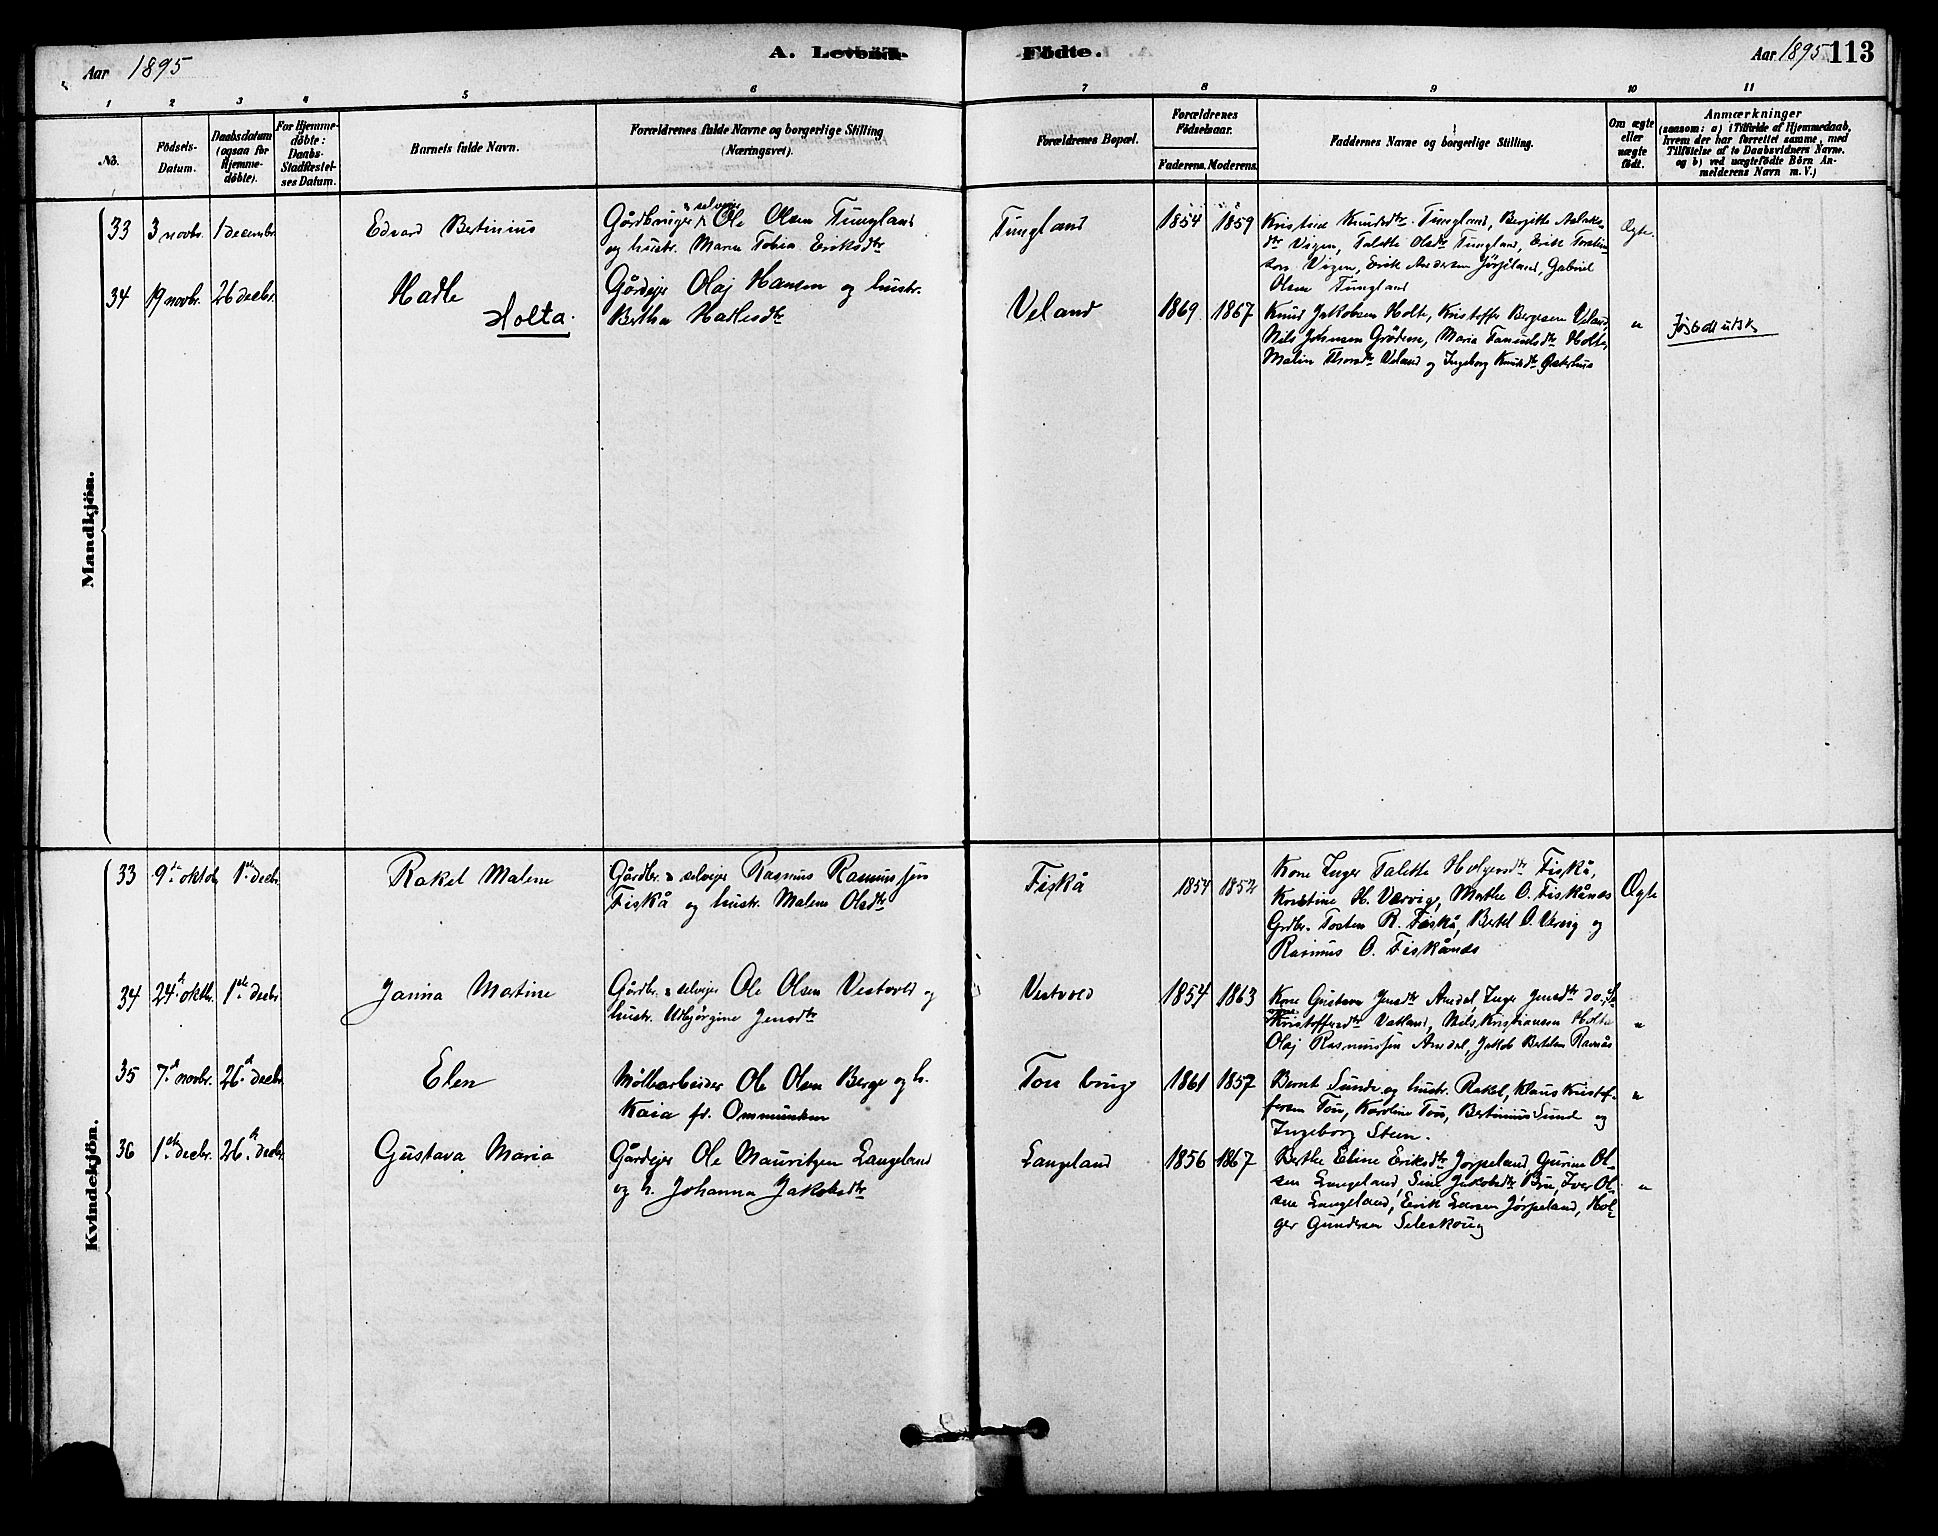 Aar 1895
A. Levende
Födte.
Aar 1895
113
1 2 3 4 5 6 7 8 9 10 11
No.
Födsels-
Datum.
Daabsdatum
(ogsaa for
Hjemme-
döbte).
For Hjemme-
döbte:
Daabs-
Stadfæstel-
ses Datum.
Barnets fulde Navn.
Forældrenes fulde Navne og borgerlige Stilling
(Næringsvei).
Forældrenes Bopæl.
Forældrenes
Födselsaar.
Faderens. Moderens.
Faddernes Navne og borgerlige Stilling.
Om ægte
eller
uægte
födt.
Anmærkninger
(saasom: a) i Tilfælde af Hjemmedaab,
hvem der har forrettet samme, med
Tilföielse af to Daabsvidners Navne,
og b) ved uægtefödte Börn An-
melderens Navn m. V.)
Mandkjön.
33 3 novbr. 1 decembr. Edvard Bertinius
Gårdbruger & selveier Ole Olsen Tungland
og hustr. Maren Tobia Eriksdtr
Tungland 1854 1859
Kristine Knudsdtr. Tungland, Bergitte Aslaks-
dtr Vigen, Talette Olsdtr Tungland, Erik Torstein-
son Vigen, Erik Andersen Jørpeland, Gabriel
Olsen Tungland
Ægte.
34 19 novbr. 26 decbr. Hadle
Holta.
Gårdejer Olaj Hansen og hustr.
Bertha Hadlesdtr
Veland 1869 1867
Knud Jakobsen Holt, Kristoffer Bergesen Veland,
Nils Johnsen Grødem, Maria Samuelsdtr Holta,
Malin Thorsdtr Veland og Ingeborg Knudsdtr
"
Kvindekjön.
33 9de oktob. 1ste decbr. Rakel Malene
Gårdbr. & selvejer Rasmus Rasmussen
Fiskå og hustr. Malene Olsdtr
Fiskå 1854 1852
Kone Inger Talette Holgersdtr Fiskå,
Kristine H. Værvig, Marthe O. Fiskånes
Grdbr. Tosten R. Fiskå, Bertel O. Vervig og
Rasmus O. Fiskånds
Ægte
34 24de oktbr. 1ste decbr. Janna Martine
Gårdbr. & selvejer Ole Olsen Vestvold og
hustr. Udbjørgine Jensdtr
Vestvold 1854 1863
Kone Gustava Jensdtr Amdal, Inger Jensdtr do.
Kristoffersdtr Vatland, Nils Kristiansen Holta
Olaj Rasmussen Amdal, Jakob Bertelsen Ramås
"
35 7de novbr. 26de decbr. Elen
Møllearbeider Ole Olsen Berge og h.
Kaia f. Ommundsen
Tou brug 1861 1857
Bernt Sunde og hustr. Rakel, Klaus Kristof-
fersen Tou, Karoline Tou, Bertinius Sund og
Ingeborg Steen.
"
36 1ste decbr. 26de decbr. Gustava Maria
Gårdejer Ole Mauritzen Langeland
og h. Johanna Jakobsdtr
Langeland 1856 1867
Berthe Eline Eriksdtr Jørpeland, Gurine Ol-
sen Langeland, Sine Jakobsdtr Bru, Iver Ol-
sen Langeland, Erik Larsen Jørpeland, Hol-
ger Gundersen Seleskoug
"